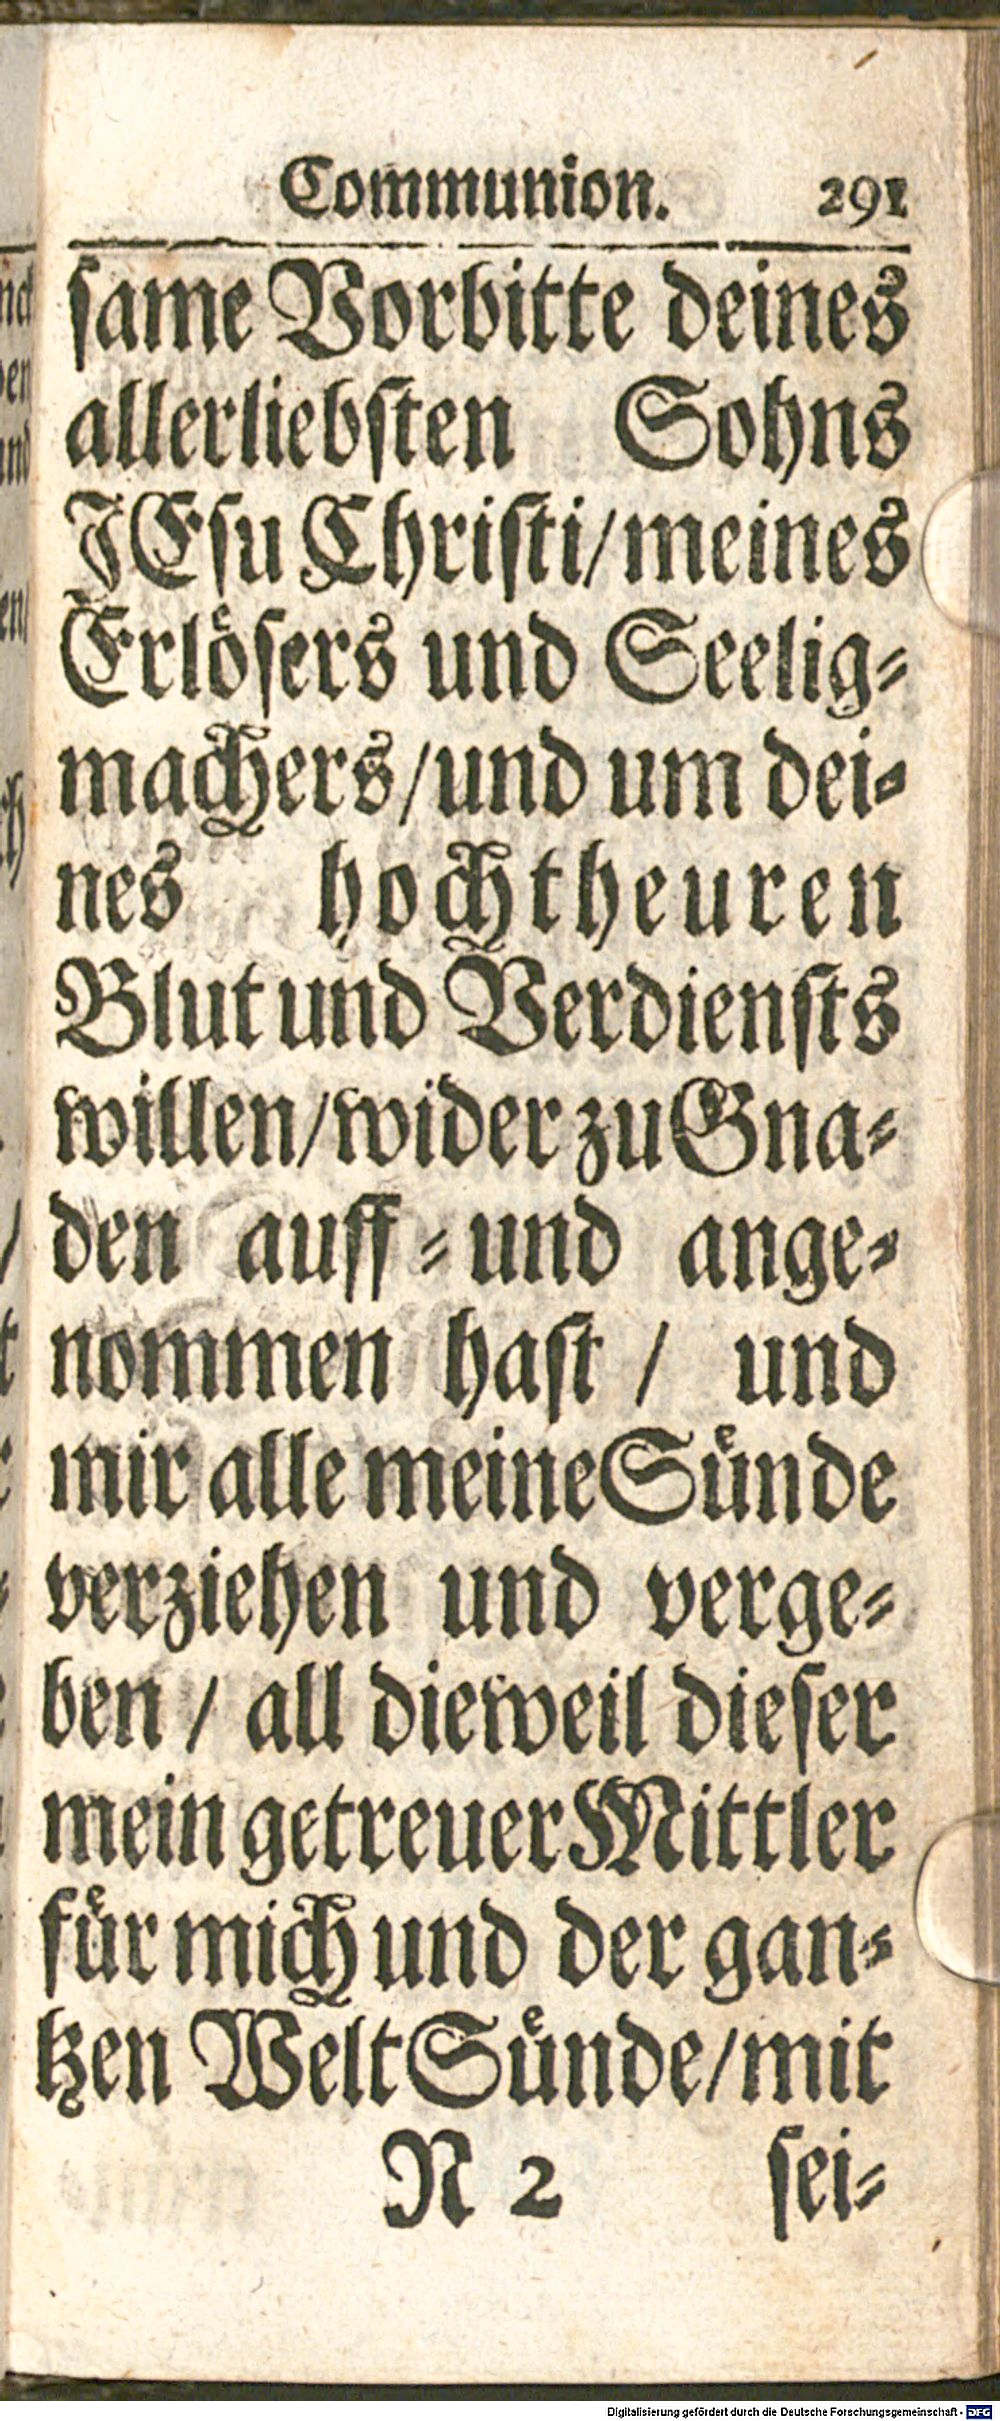 Communion. 291
ſame Vorbitte deines
allerliebſten Sohns
JEſu Chriſti/meines
Erlöſers und Seelig⸗
machers/und um dei⸗
nes hochtheuren
Blut und Verdienſts
willen/wider zu Gna⸗
den auff⸗und ange⸗
nommen haſt / und
mir alle meine Sünde
verziehen und verge⸗
ben / all dieweil dieſer
mein getreuer Mittler
für mich und der gan⸗
tzen Welt Sünde/mit
N 2 ſei⸗
Digitalisierung gefördert durch die Deutsche Forschungsgemeinschaft - DFG